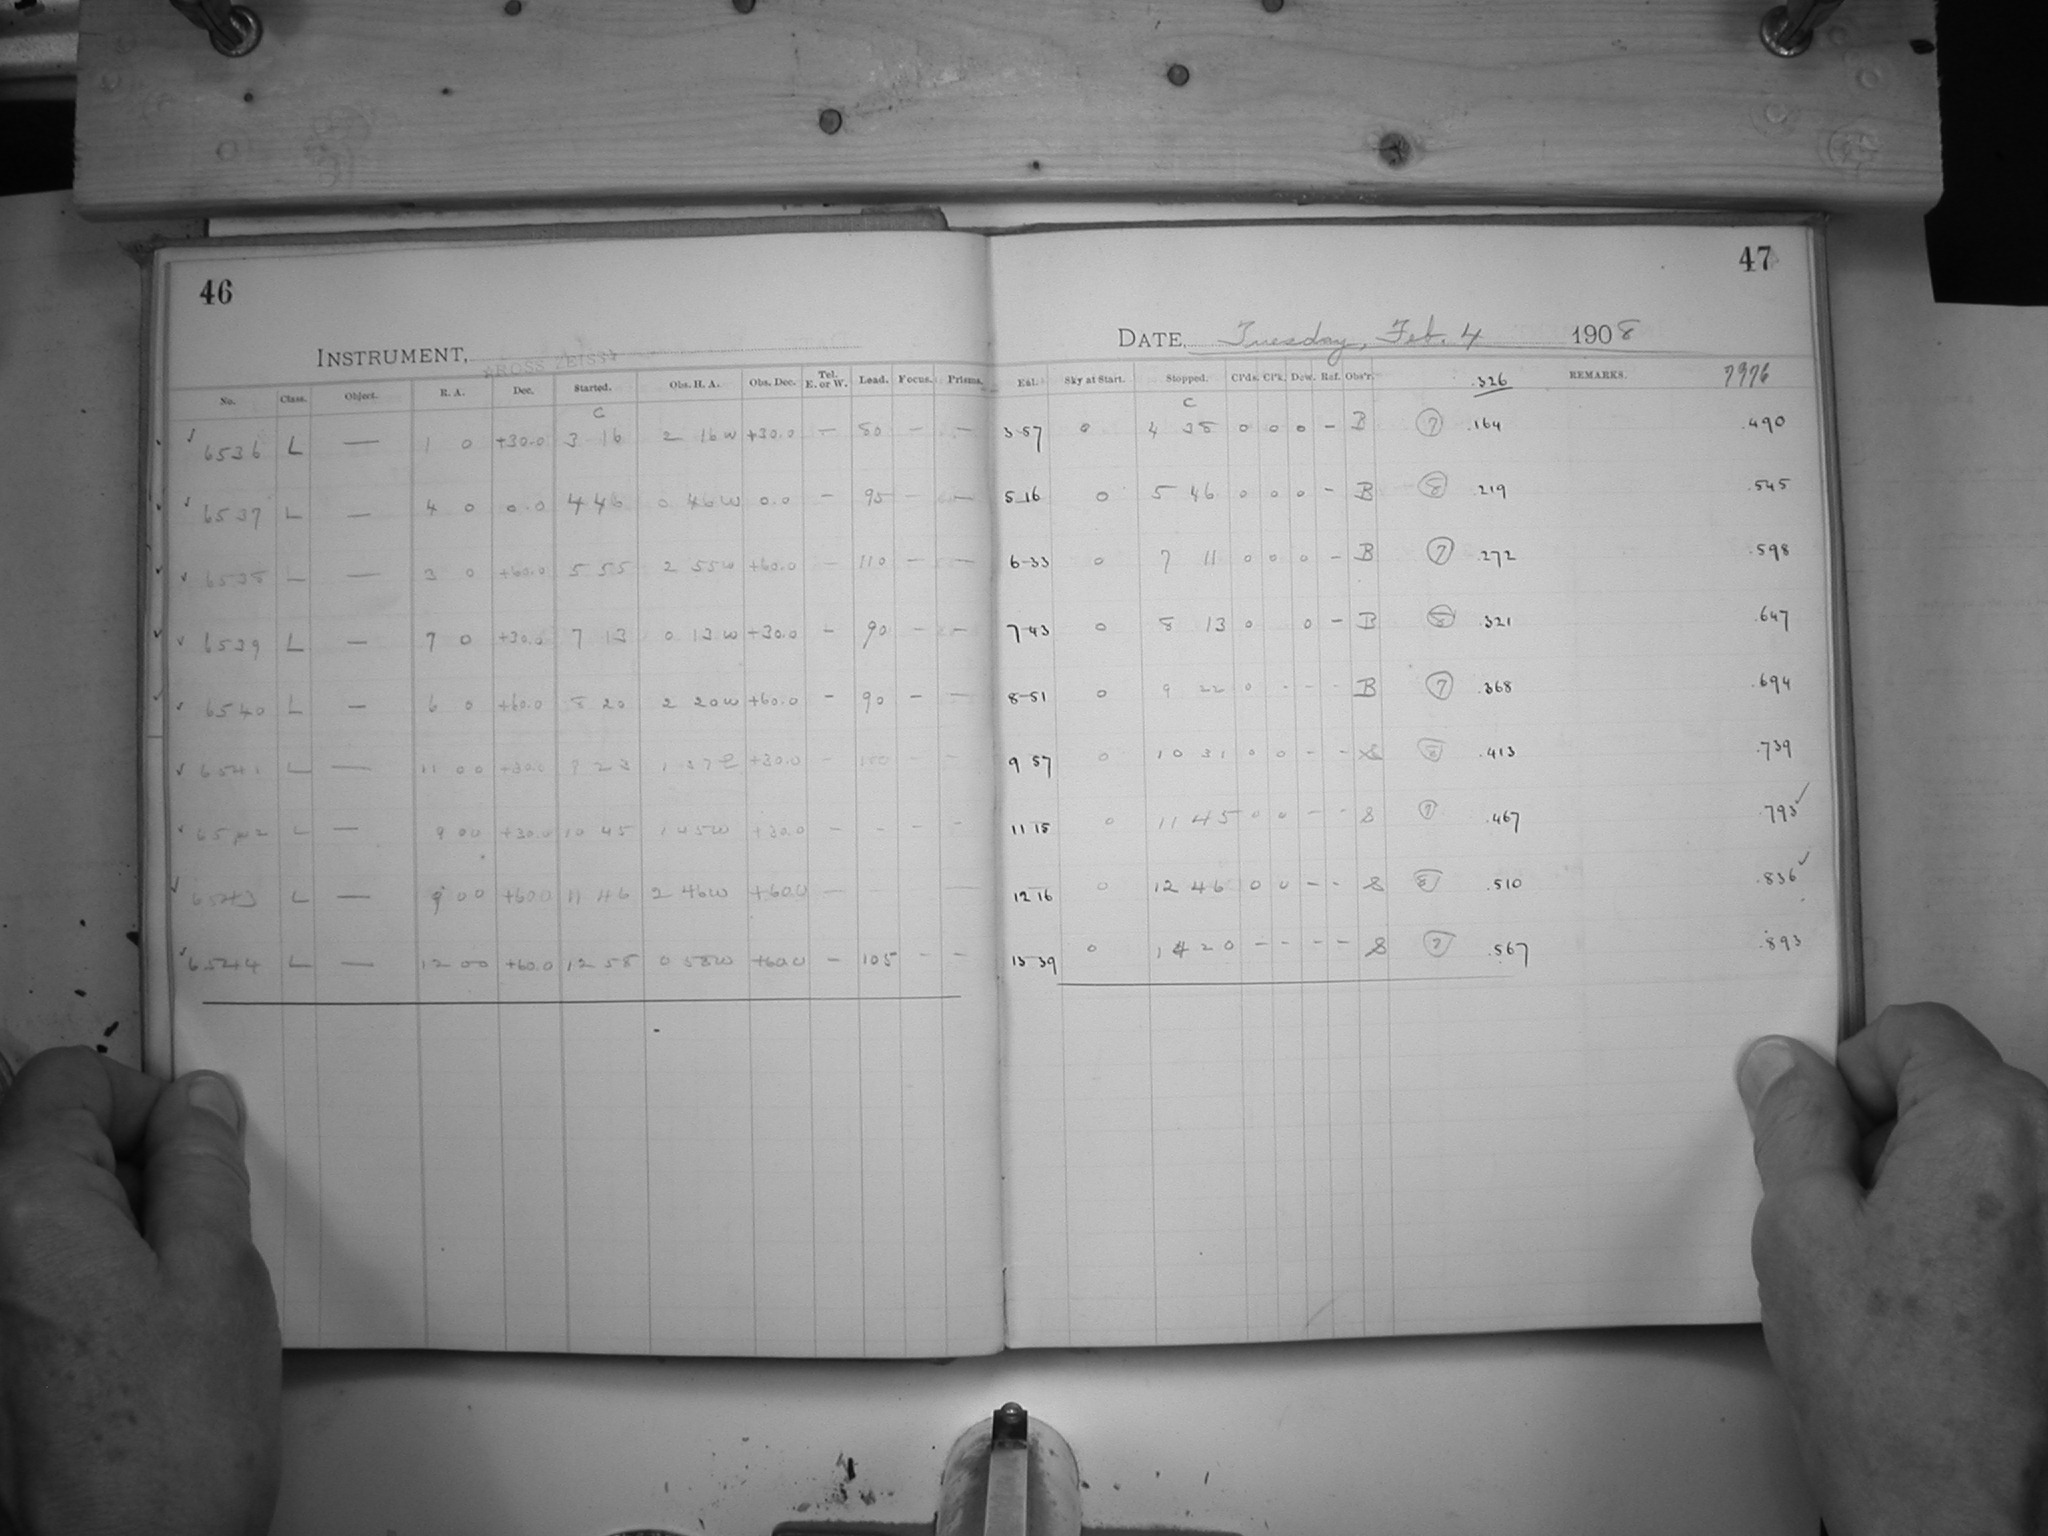 46
47
INSTRUMENT, ROSS ZEISS
DATE, Tuesday, Feb. 4 1908
No. Class. Object. R. A. Dec. Started. Obs. H. A. Obs. Dec. Tel. E. or W. Lead. Focus. Prisms. Est. Sky at Start. Stopped. Cl'ds. Cl'k. Dew. Ref. Obs'r. .326 REMARKS. 7976
C C
6536 L — 1 0 +30.0 3 16 2 16W +30.0 — 80 — — 3 57 0 4 38 0 0 0 – B 7 .164 .490
6537 L — 4 0 0.0 4 46 0 46W 0.0 – 95 – — 5 16 0 5 46 0 0 0 – B 8 .219 .545
6538 L — 3 0 +60.0 5 55 2 55W +60.0 – 110 – — 6 33 0 7 11 0 0 0 – B 7 .272 .598
6539 L — 7 0 +30.0 7 13 0 13W +30.0 – 90 – — 7 43 0 8 13 0 0 – B 8 .321 .647
6540 L — 6 0 +60.0 8 20 2 20W +60.0 – 90 – — 8 51 0 9 22 0 - - - B 7 .368 .694
6541 L — 11 00 +30.0 9 23 1 37E +30.0 – 100 – – 9 57 0 10 31 0 0 – – S 8 .413 .739
6542 L — 9 00 +30.0 10 45 1 45W +30.0 – - - - 11 15 0 11 45 0 0 – – S 7 .467 .793
6543 L — 9 00 +60.0 11 46 2 46W +60.0 — — 12 16 0 12 46 0 0 – - S 8 .510 .836
6544 L — 12 00 +60.0 12 58 0 58W +60.0 – 105 – – 13 39 0 14 20 – – – – S 7 .567 .893